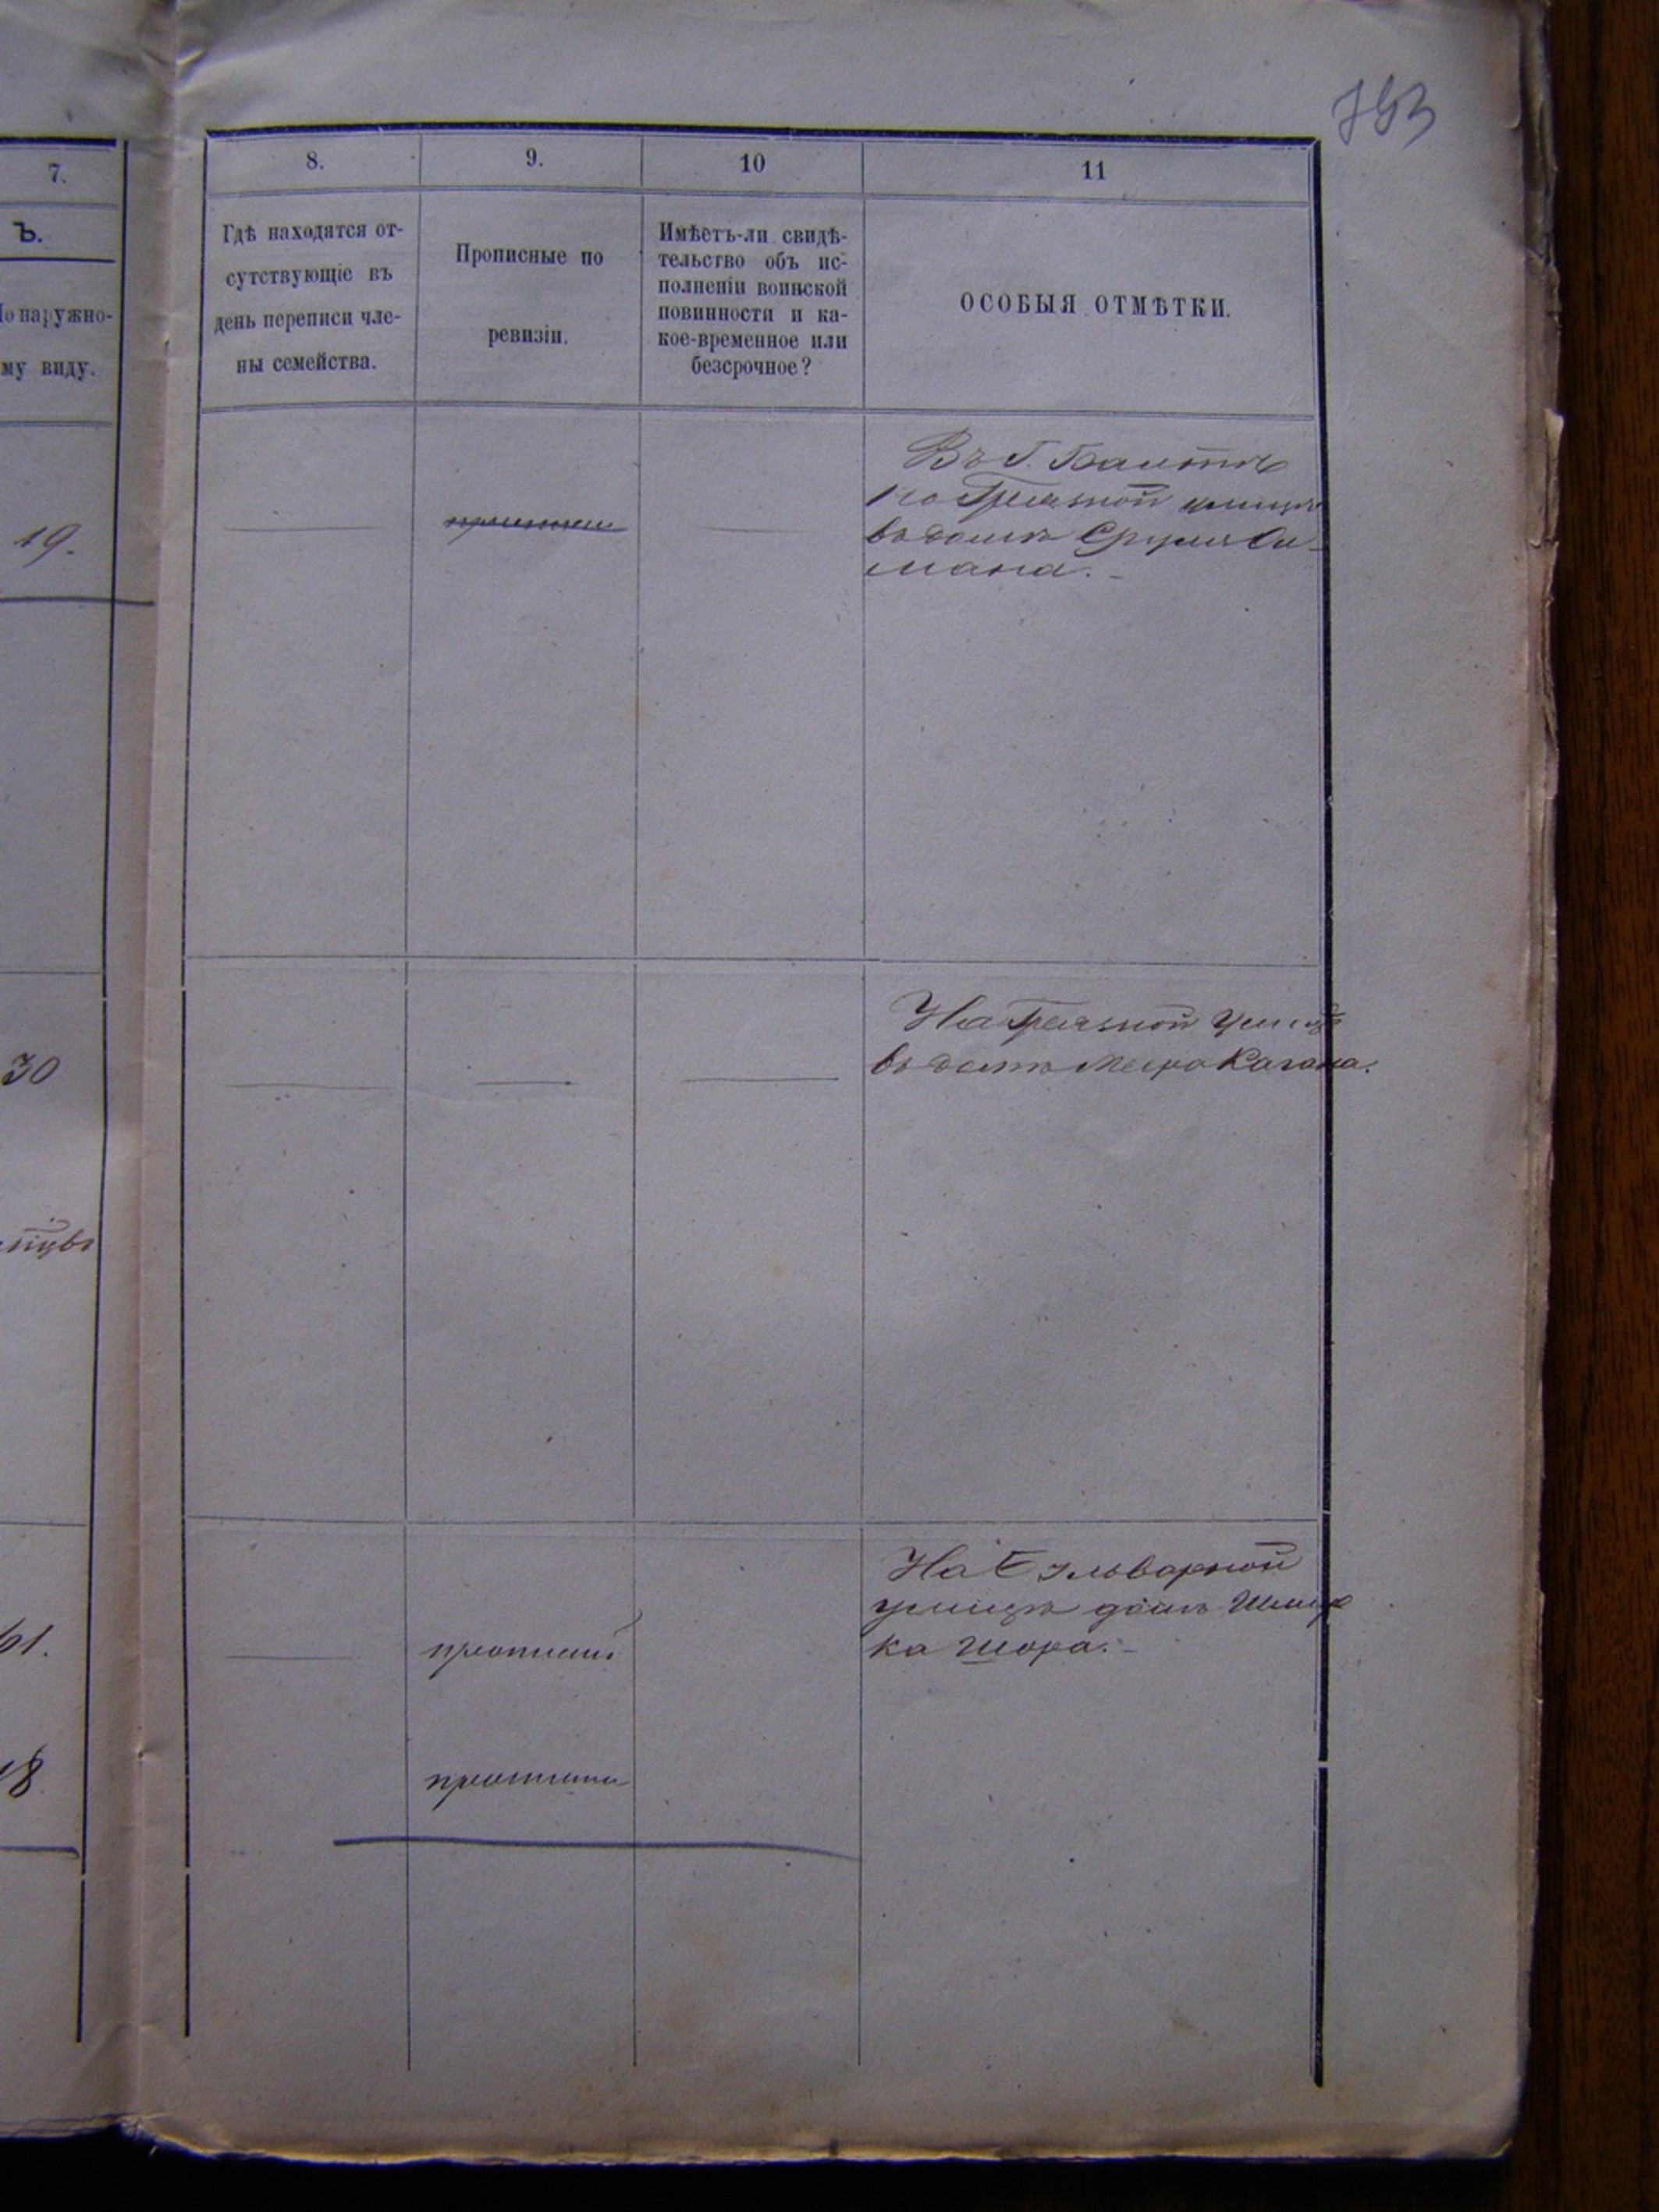 783
7.
Ъ.
По наружно-
му виду.
19.
30
61.
18
8.
Гдѣ находятся от-
сутствующіе въ
день переписи чле-
ны семейства.
9.
Прописные по
ревизіи.
10
Имѣетъ-ли свидѣ-
тельство объ ис-
полненіи воинской
повинности и ка-
кое-временное или
безсрочное?
11
ОСОБЫЯ ОТМѢТКИ.
Въ Г. Балтѣ
по Грязной улицѣ
въ домѣ Сруля
мана.
На Грязной улицѣ
въ домѣ Меера Кагана.
прописной
прописной
На Бульварной
улицѣ домъ
ка Шора.